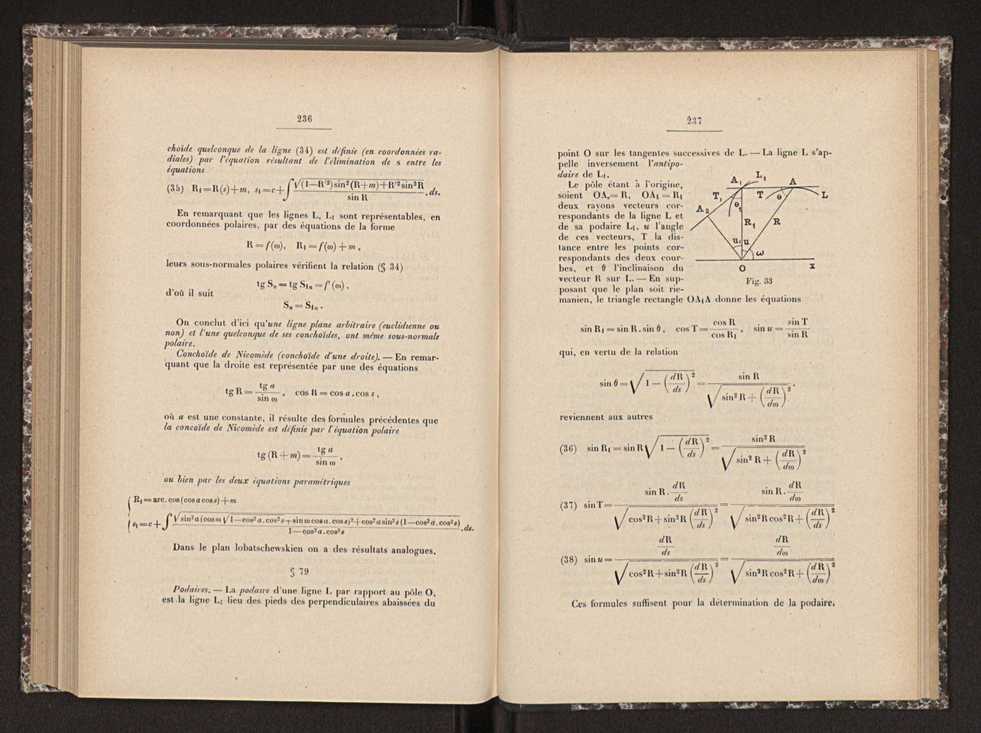 236
choïde quelconque de la ligne (34) est définie (en coordonnées ra-
diales) par l'équation résultant de l'élimination de s entre les
équations
(35) R₁=R(s)+m, s₁=c+∫ √(1—R'²) sin²(R+m)+R'² sin²R / sin R . ds.
En remarquant que les lignes L, L₁ sont représentables, en
coordonnées polaires, par des équations de la forme
R = f(ω), R₁ = f(ω) + m,
leurs sous-normales polaires vérifient la relation (§ 34)
tg Sₙ = tg S₁ₙ = f'(ω),
d'où il suit
Sₙ = S₁ₙ.
On conclut d'ici qu'une ligne plane arbitraire (euclidienne ou
non) et l'une quelconque de ses conchoïdes, ont même sous-normale
polaire.
Conchoïde de Nicomède (conchoïde d'une droite). — En remar-
quant que la droite est représentée par une des équations
tg R = tg a / sin ω , cos R = cos a . cos s ,
où a est une constante, il résulte des formules précédentes que
la concoïde de Nicomède est définie par l'équation polaire
tg (R + m) = tg a / sin ω ,
ou bien par les deux équations paramétriques
R₁ = arc. cos (cos a cos s) + m
s₁ = c + ∫ √ sin²a (cos m √1—cos²a. cos²s + sin m cos a. cos s)² + cos²a sin²s (1—cos²a. cos²s) / 1—cos²a. cos²s . ds.
Dans le plan lobatschewskien on a des résultats analogues.
§ 79
Podaires. — La podaire d'une ligne L par rapport au pôle O,
est la ligne L₁ lieu des pieds des perpendiculaires abaissées du
237
point O sur les tangentes successives de L. — La ligne L s'ap-
pelle inversement l'antipo-
daire de L₁.
Le pôle étant à l'origine,
soient OA = R, OA₁ = R₁
deux rayons vecteurs cor-
respondants de la ligne L et
de sa podaire L₁, u l'angle
de ces vecteurs, T la dis-
tance entre les points cor-
respondants des deux cour-
bes, et θ l'inclinaison du
vecteur R sur L. — En sup-
posant que le plan soit rie-
manien, le triangle rectangle OA₁A donne les équations
A₁ L₁ A
T₁ T θ L
A₂ θ₁
R₁ R
u₁ u ω
O x
Fig. 33
sin R₁ = sin R . sin θ , cos T = cos R / cos R₁ , sin u = sin T / sin R
qui, en vertu de la relation
sin θ = √ 1 — (dR/ds)² = sin R / √ sin² R + (dR/dω)² ,
reviennent aux autres
(36) sin R₁ = sin R √ 1 — (dR/ds)² = sin² R / √ sin² R + (dR/dω)²
(37) sin T = sin R . dR/ds / √ cos²R + sin²R (dR/ds)² = sin R . dR/dω / √ sin²R cos²R + (dR/ds)²
(38) sin u = dR/ds / √ cos²R + sin²R (dR/ds)² = dR/dω / √ sin²R cos²R + (dR/dω)²
Ces formules suffisent pour la détermination de la podaire.